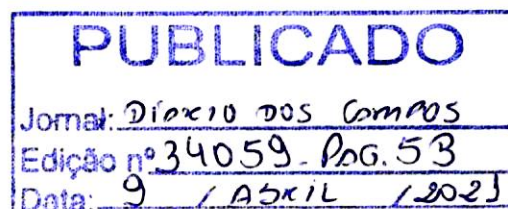 PUBLICADO
Jornal: Diário dos Campos
Edição nº 34059 - PAG. 5B
Data: 9 / Abril /